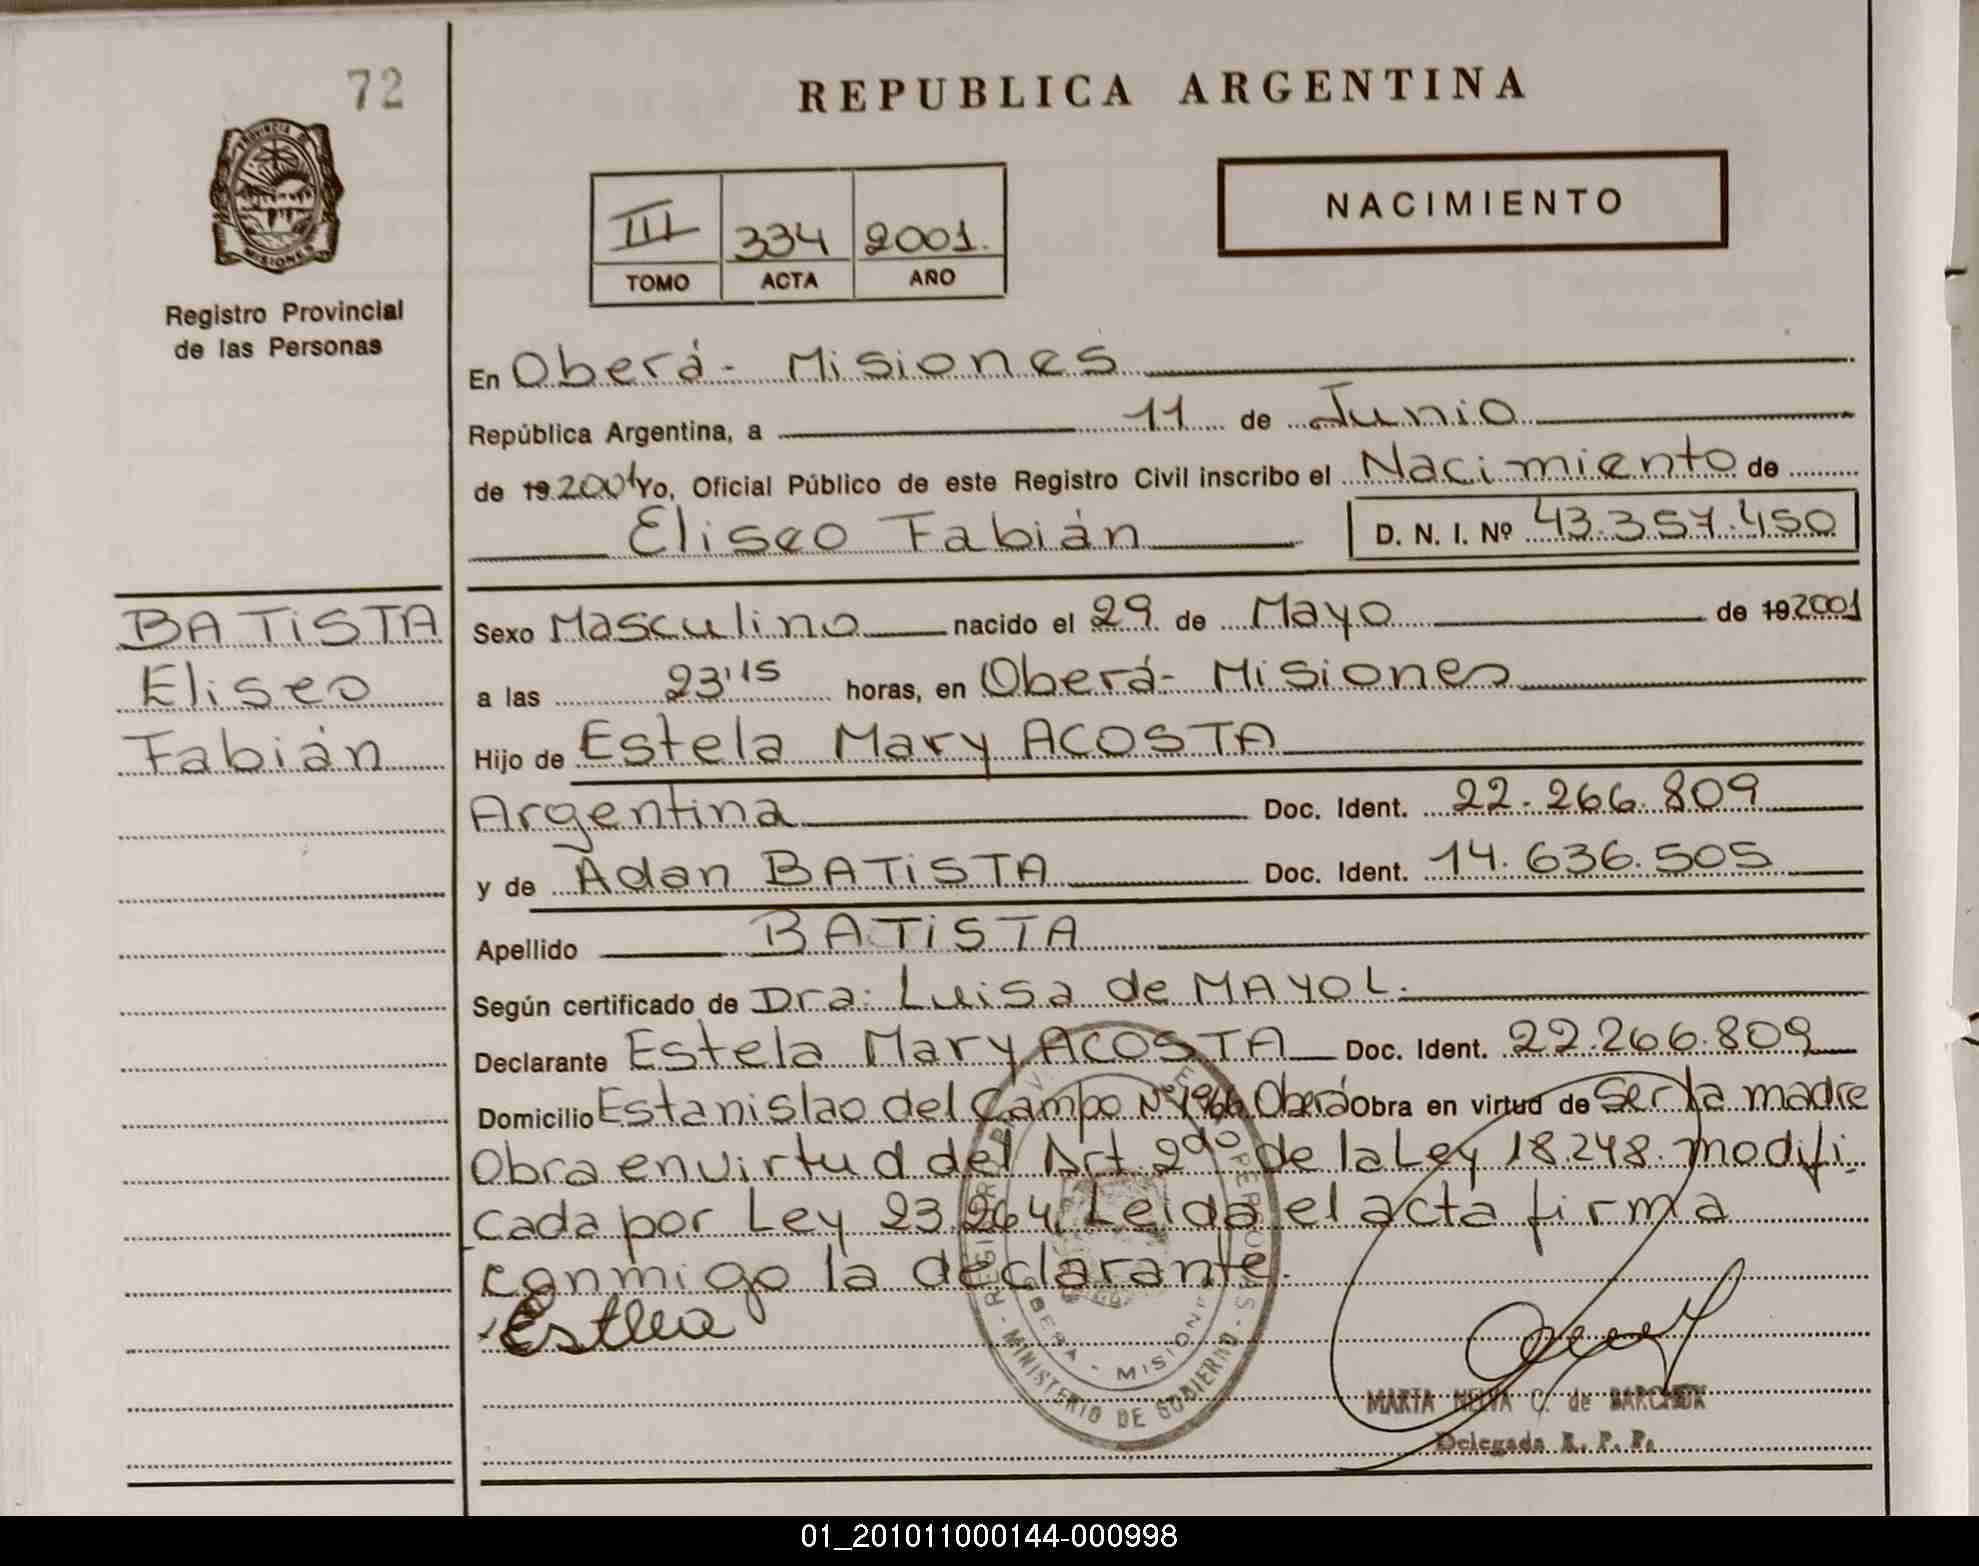 72
REPUBLICA ARGENTINA
PROVINCIA DE
MISIONES
Registro Provincial
de las Personas
NACIMIENTO
III 334 2001.
TOMO ACTA AÑO
En Oberá - Misiones
República Argentina, a 11 de Junio
de 19 2001 Yo, Oficial Público de este Registro Civil inscribo el Nacimiento de
Eliseo Fabián D. N. I. Nº 43.357.450
BATISTA
Eliseo
Fabián
Sexo Masculino nacido el 29 de Mayo de 19 2001
a las 23'15 horas, en Oberá - Misiones
Hijo de Estela Mary ACOSTA
Argentina Doc. Ident. 22.266.809
y de Adan BATISTA Doc. Ident. 14.636.505
Apellido BATISTA
Según certificado de Dra: Luisa de MAYOL.
Declarante Estela Mary ACOSTA Doc. Ident. 22.266.809
Domicilio Estanislao del Campo Nº Oberá Obra en virtud de ser la madre
Obra en virtud del Art. 2do de la Ley 18.248. modifi
cada por Ley 23.264. Leida el acta firma
conmigo la declarante.
Esthea
MINISTERIO DE GOBIERNO
OBERA - MISIONES
MARTA NELVA C. de BARCHUK
Delegada R. P. P.
01_201011000144-000998